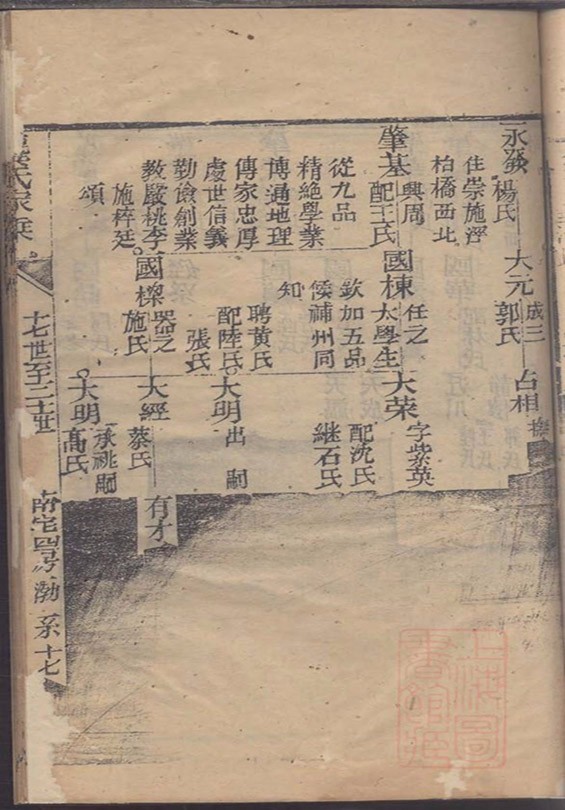 永發
楊氏
住崇施涇
柏橋西北
大元
成三
郭氏
占相
撫
肇基
興周
配王氏
從九品
精絕學業
博通地理
傳家忠厚
處世信義
勤儉創業
教嚴桃李
施粹廷
頌
國棟
任之
大學生
欽加五品
候補州同
知
聘黃氏
配陸氏
張氏
大荣
字紫英
配沈氏
継石氏
大明
出嗣
國樑
器之
施氏
大經
蔡氏
有才
大明
承祧嗣
髙氏
氏家乘
十七世至二十世
南宅四房渤系十七
上海圖書館藏